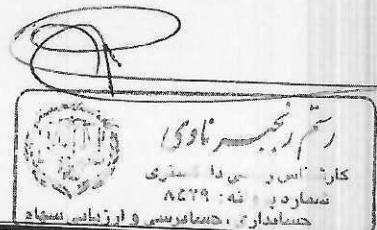 رستم رنجبر ناوی
کارشناس رسمی دادگستری
شماره پروانه:
حسابداری، حسابرسی و ارزیابی سهام